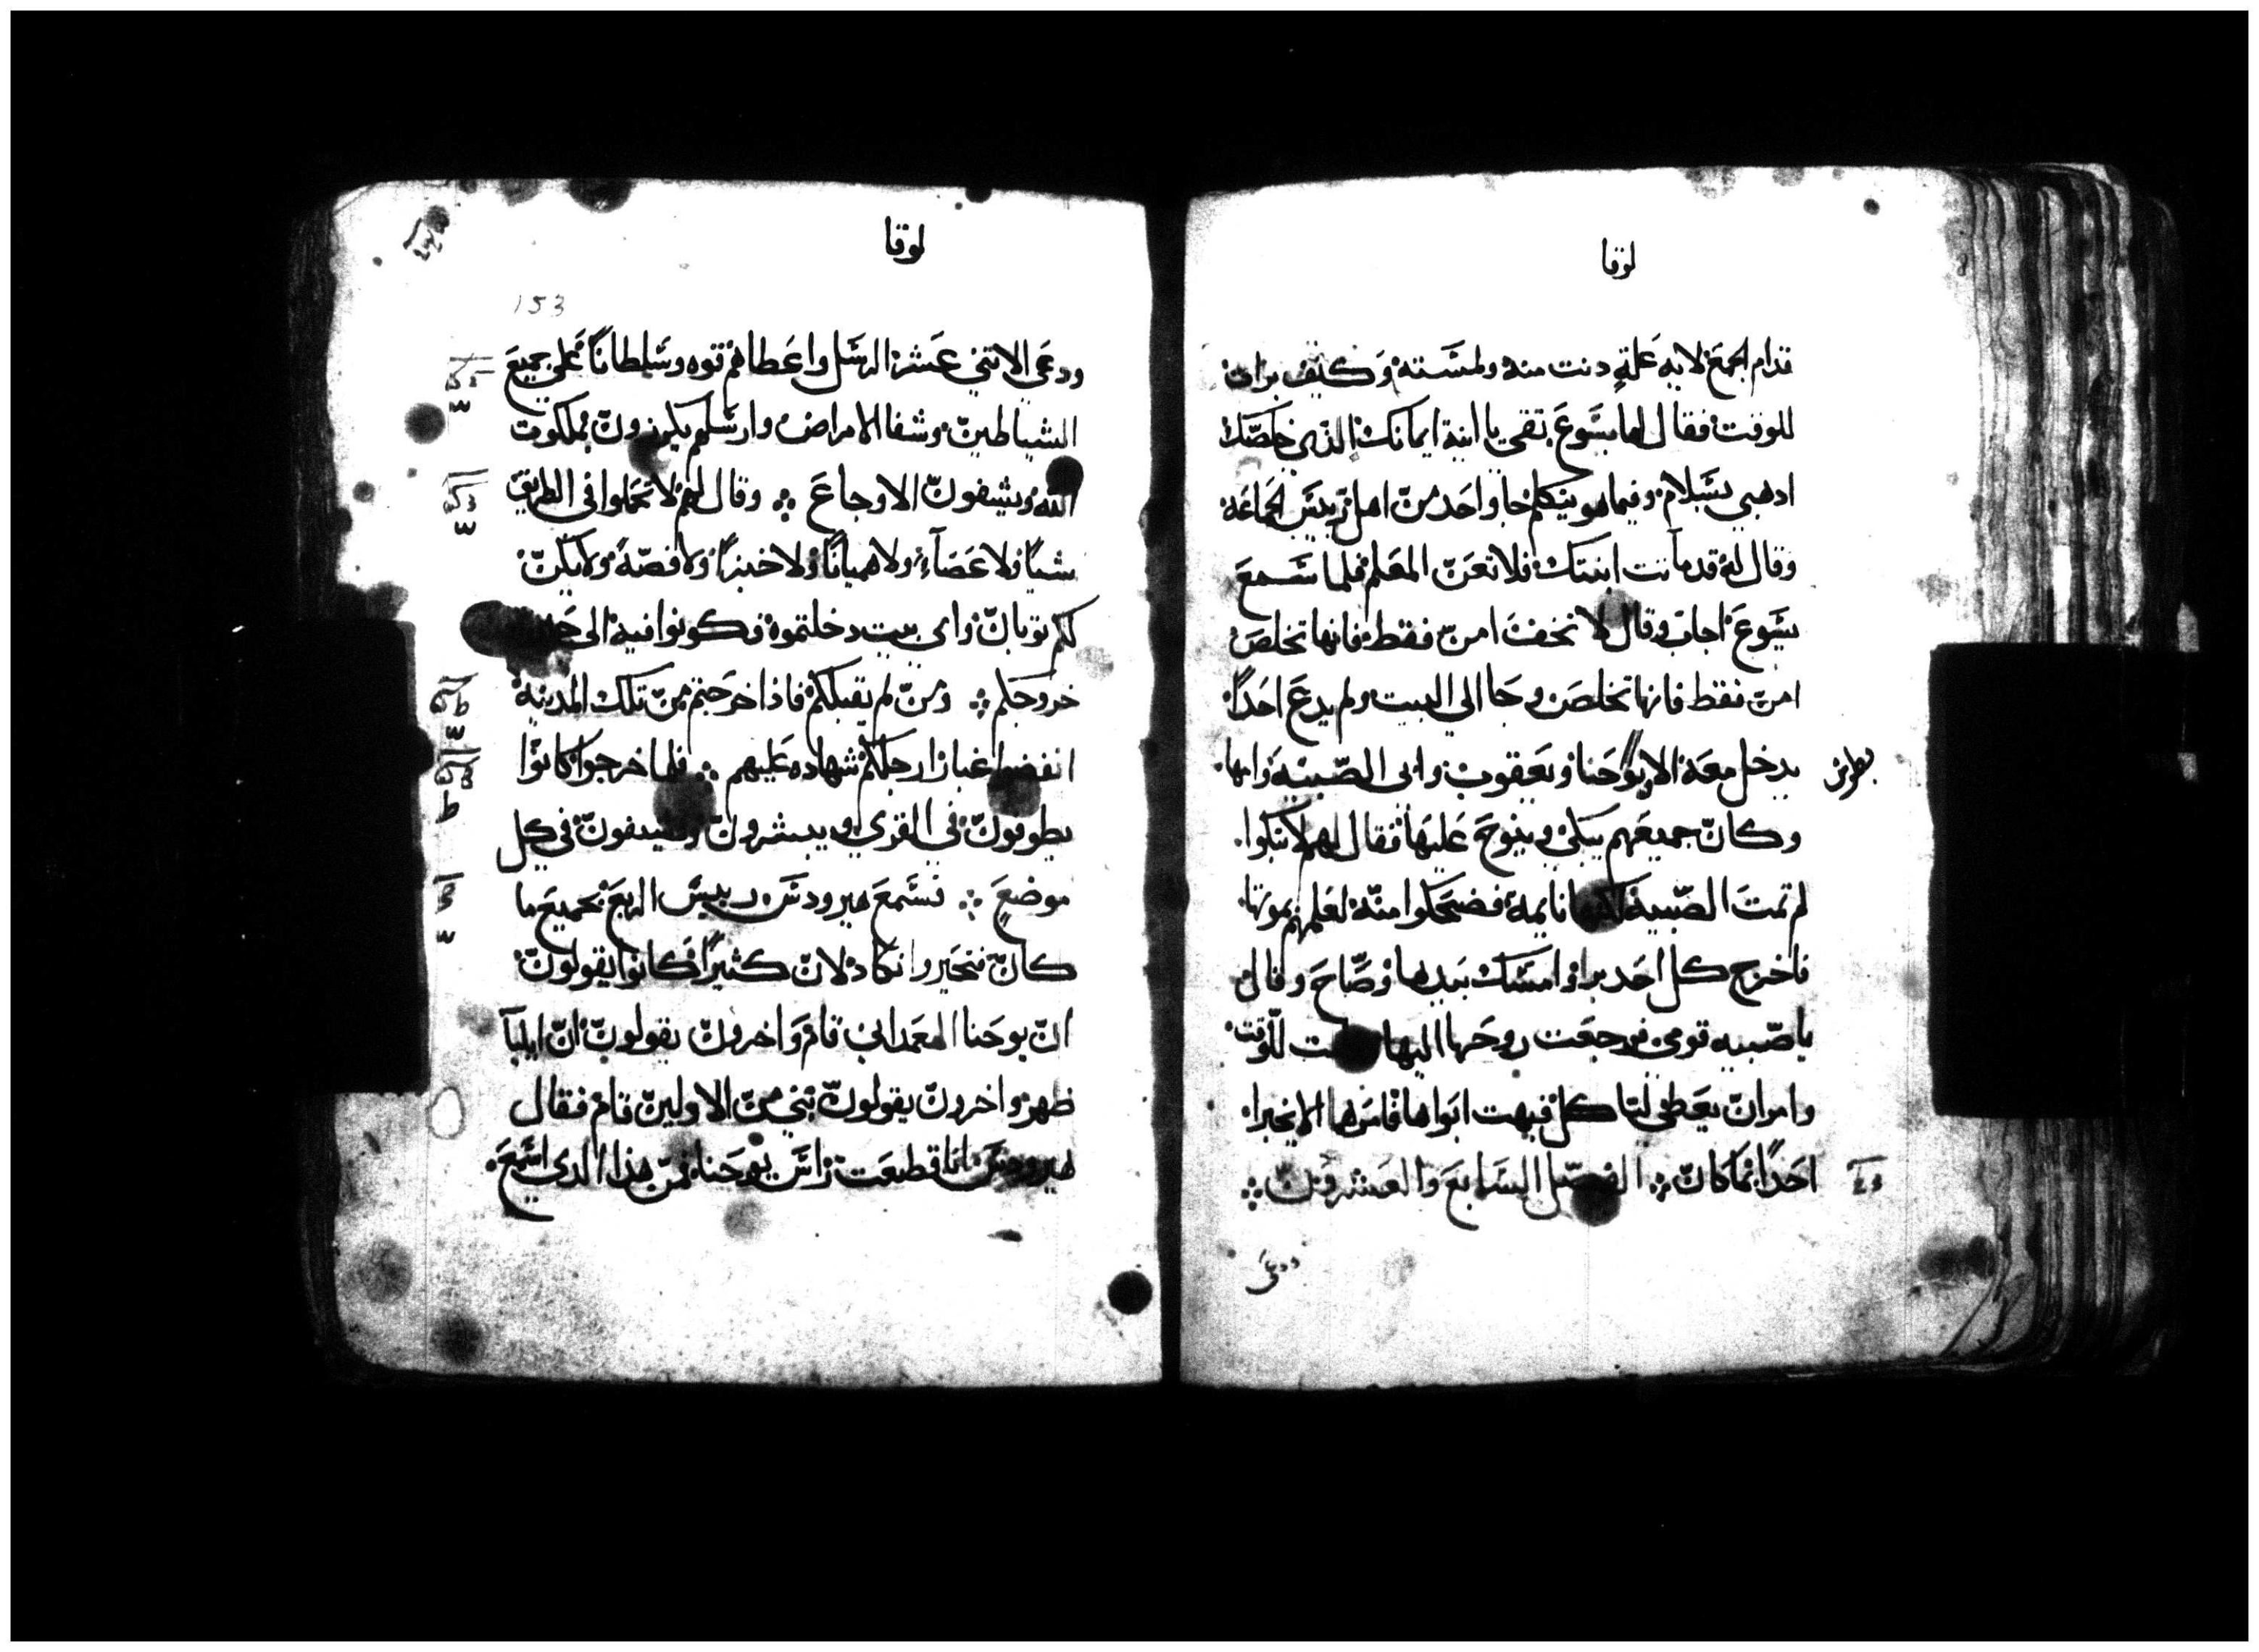 لوقا
قدام الجمع لايه علة دنت منه ولمسته وكيف برات
للوقت فقال لها يسوع تقي يا ابنة ايمانك الذي خلصك
ادهبي بسلام وفيما هو يتكلم جا واحد من اهل ريس الجماعة
وقال له قد ماتت ابنتك فلا تعن المعلم فلما سمع
يسوع اجاب وقال لا تخف امن فقط فانها تخلص
امن فقط فانها تخلص وجا الي البيت ولم يدع احدا
يدخل معه الا يوحنا ويعقوب وابي الصبيه وامها
بطرس
وكان جميعهم يبكي وينوح عليها فقال لهم لا تبكوا
لم تمت الصبيه لكنها نايمة فضحكوا منه لعلمهم بموتها
فاخرج كل احد برا وامسك بيدها وصاح وقال
يا صبيه قومي فرجعت روحها اليها للوقت
وامر ان يعطي لتاكل فبهت ابواها فامرهما الا يخبرا
احدا بما كان الفصل السابع والعشرون
ودعي
لوقا
153
ودعي الاتني عشر الرسل واعطاهم قوه وسلطانا علي جميع
الشياطين وشفا الامراض وارسلهم يكرزون بملكوت
الله ويشفون الاوجاع وقال لهم لا تحملوا في الطريق
شيا ولا عصا ولا هميانا ولا خبزا ولا فضة ولا يكن
لكم ثوبان واي بيت دخلتموه فكونوا فيه الى حين
خروجكم ومن لم يقبلكم فاذا خرجتم من تلك المدينة
انفضوا غبار ارجلكم شهاده عليهم فلما خرجوا كانوا
يطوفون في القري ويبشرون ويشفون في كل
موضع فسمع هيرودس رييس الربع بجميع ما
كان فتحير وانكا دلان كثيرا كانوا يقولون
ان يوحنا المعمداني قام واخرون يقولون ان ايليا
ظهر واخرون يقولون نبي من الاولين قام فقال
هيرودس انا قطعت راس يوحنا فمن هذا الدي اسمع